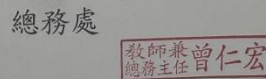 總務處
教師兼
總務主任 曾仁宏